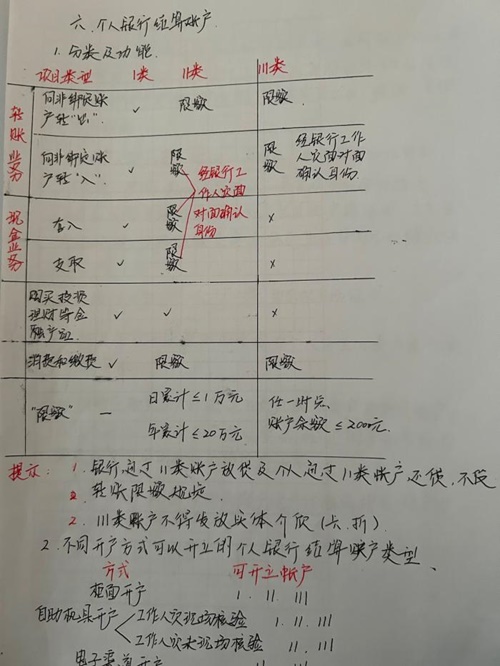 六、个人银行结算账户
1.分类及功能
项目类型 I类 II类 III类
转账业务
向非绑定账户转"出" ✓ 限额 限额
向非绑定账户转"入" ✓ 限额 经银行工作人员面对面确认身份 限额 经银行工作人员面对面确认身份
现金业务
存入 ✓ 限额 ×
支取 ✓ 限额 ×
购买投资理财等金融产品 ✓ ✓ ×
消费和缴费 ✓ 限额 限额
"限额" — 日累计≤1万元 任一时点
年累计≤20万元 账户余额≤2000元
提示: 1. 银行通过II类账户放贷及个人通过II类账户还贷,不受
转账限额规定
2. III类账户不得发放实体介质(卡、折)
2.不同开户方式可以开立的个人银行结算账户类型
方式 可开立账户
柜面开户 I. II. III
自助机具开户 工作人员现场核验 I. II. III
工作人员未现场核验 II. III
电子渠道开户